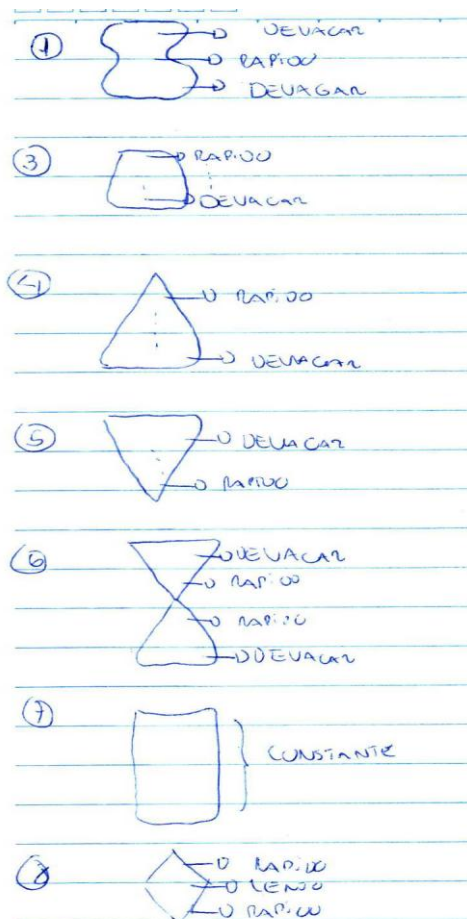 1 DEVAGAR
RAPIDO
DEVAGAR
3 RAPIDO
DEVAGAR
4 RAPIDO
DEVAGAR
5 DEVAGAR
RAPIDO
6 DEVAGAR
RAPIDO
RAPIDO
DEVAGAR
7 CONSTANTE
8 RAPIDO
LENTO
RAPIDO